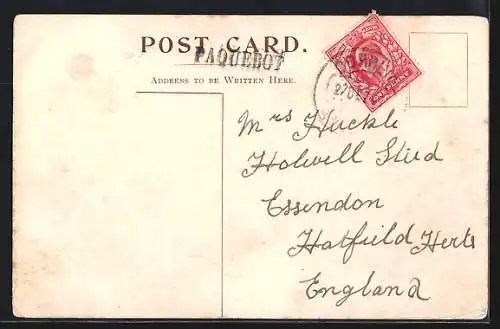 POST CARD.
PAQUEBOT
ADDRESS TO BE WRITTEN HERE.
ONE PENNY
Mrs Huckle
Holwell Stud
Essendon
Hatfield Herts
England